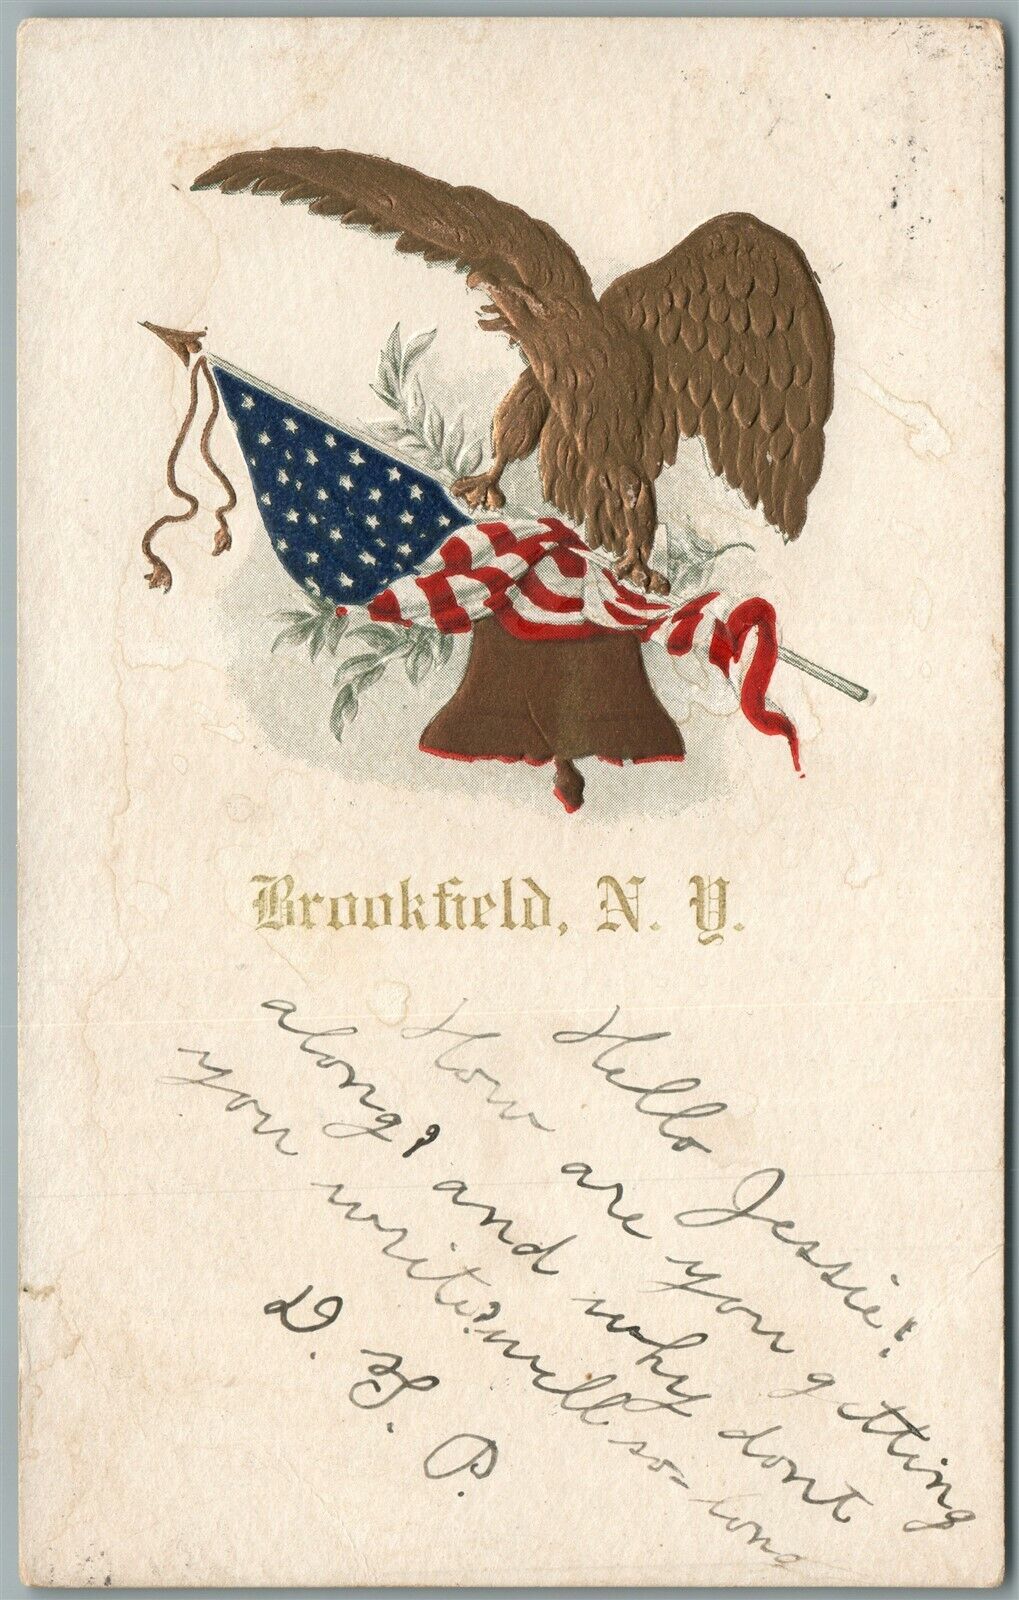 Brookfield, N. Y.
Hello Jessie!
How are you getting
along, and why dont
you write? well so-long
D. F. P.